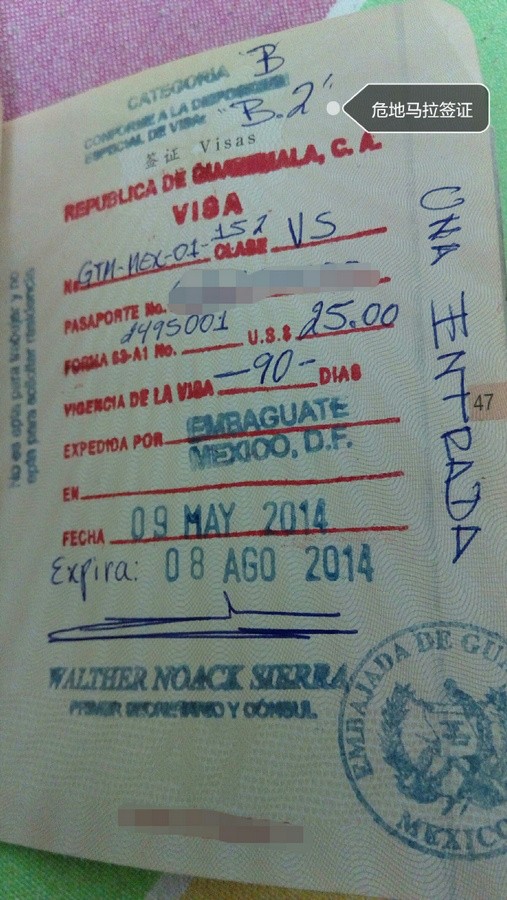 CATEGORIA B
CONFORME A LA DISPOSICION
ESPECIAL DE VISA: "B.2"
危地马拉签证
签证 Visas
REPUBLICA DE GUATEMALA, C. A.
VISA
No. GTM-MEX-01-152 CLASE VS
PASAPORTE No.
FORMA 63-A1 No. 2495001 U.S.$ 25.00
VIGENCIA DE LA VISA -90- DIAS
EXPEDIDA POR EMBAGUATE
MEXICO, D.F.
EN
FECHA 09 MAY 2014
Expira: 08 AGO 2014
WALTHER NOACK SIERRA
PRIMER SECRETARIO Y CONSUL
UNA ENTRADA
47
No es apta para trabajar y no
apta para solicitar residencia
EMBAJADA DE GU
MEXICO